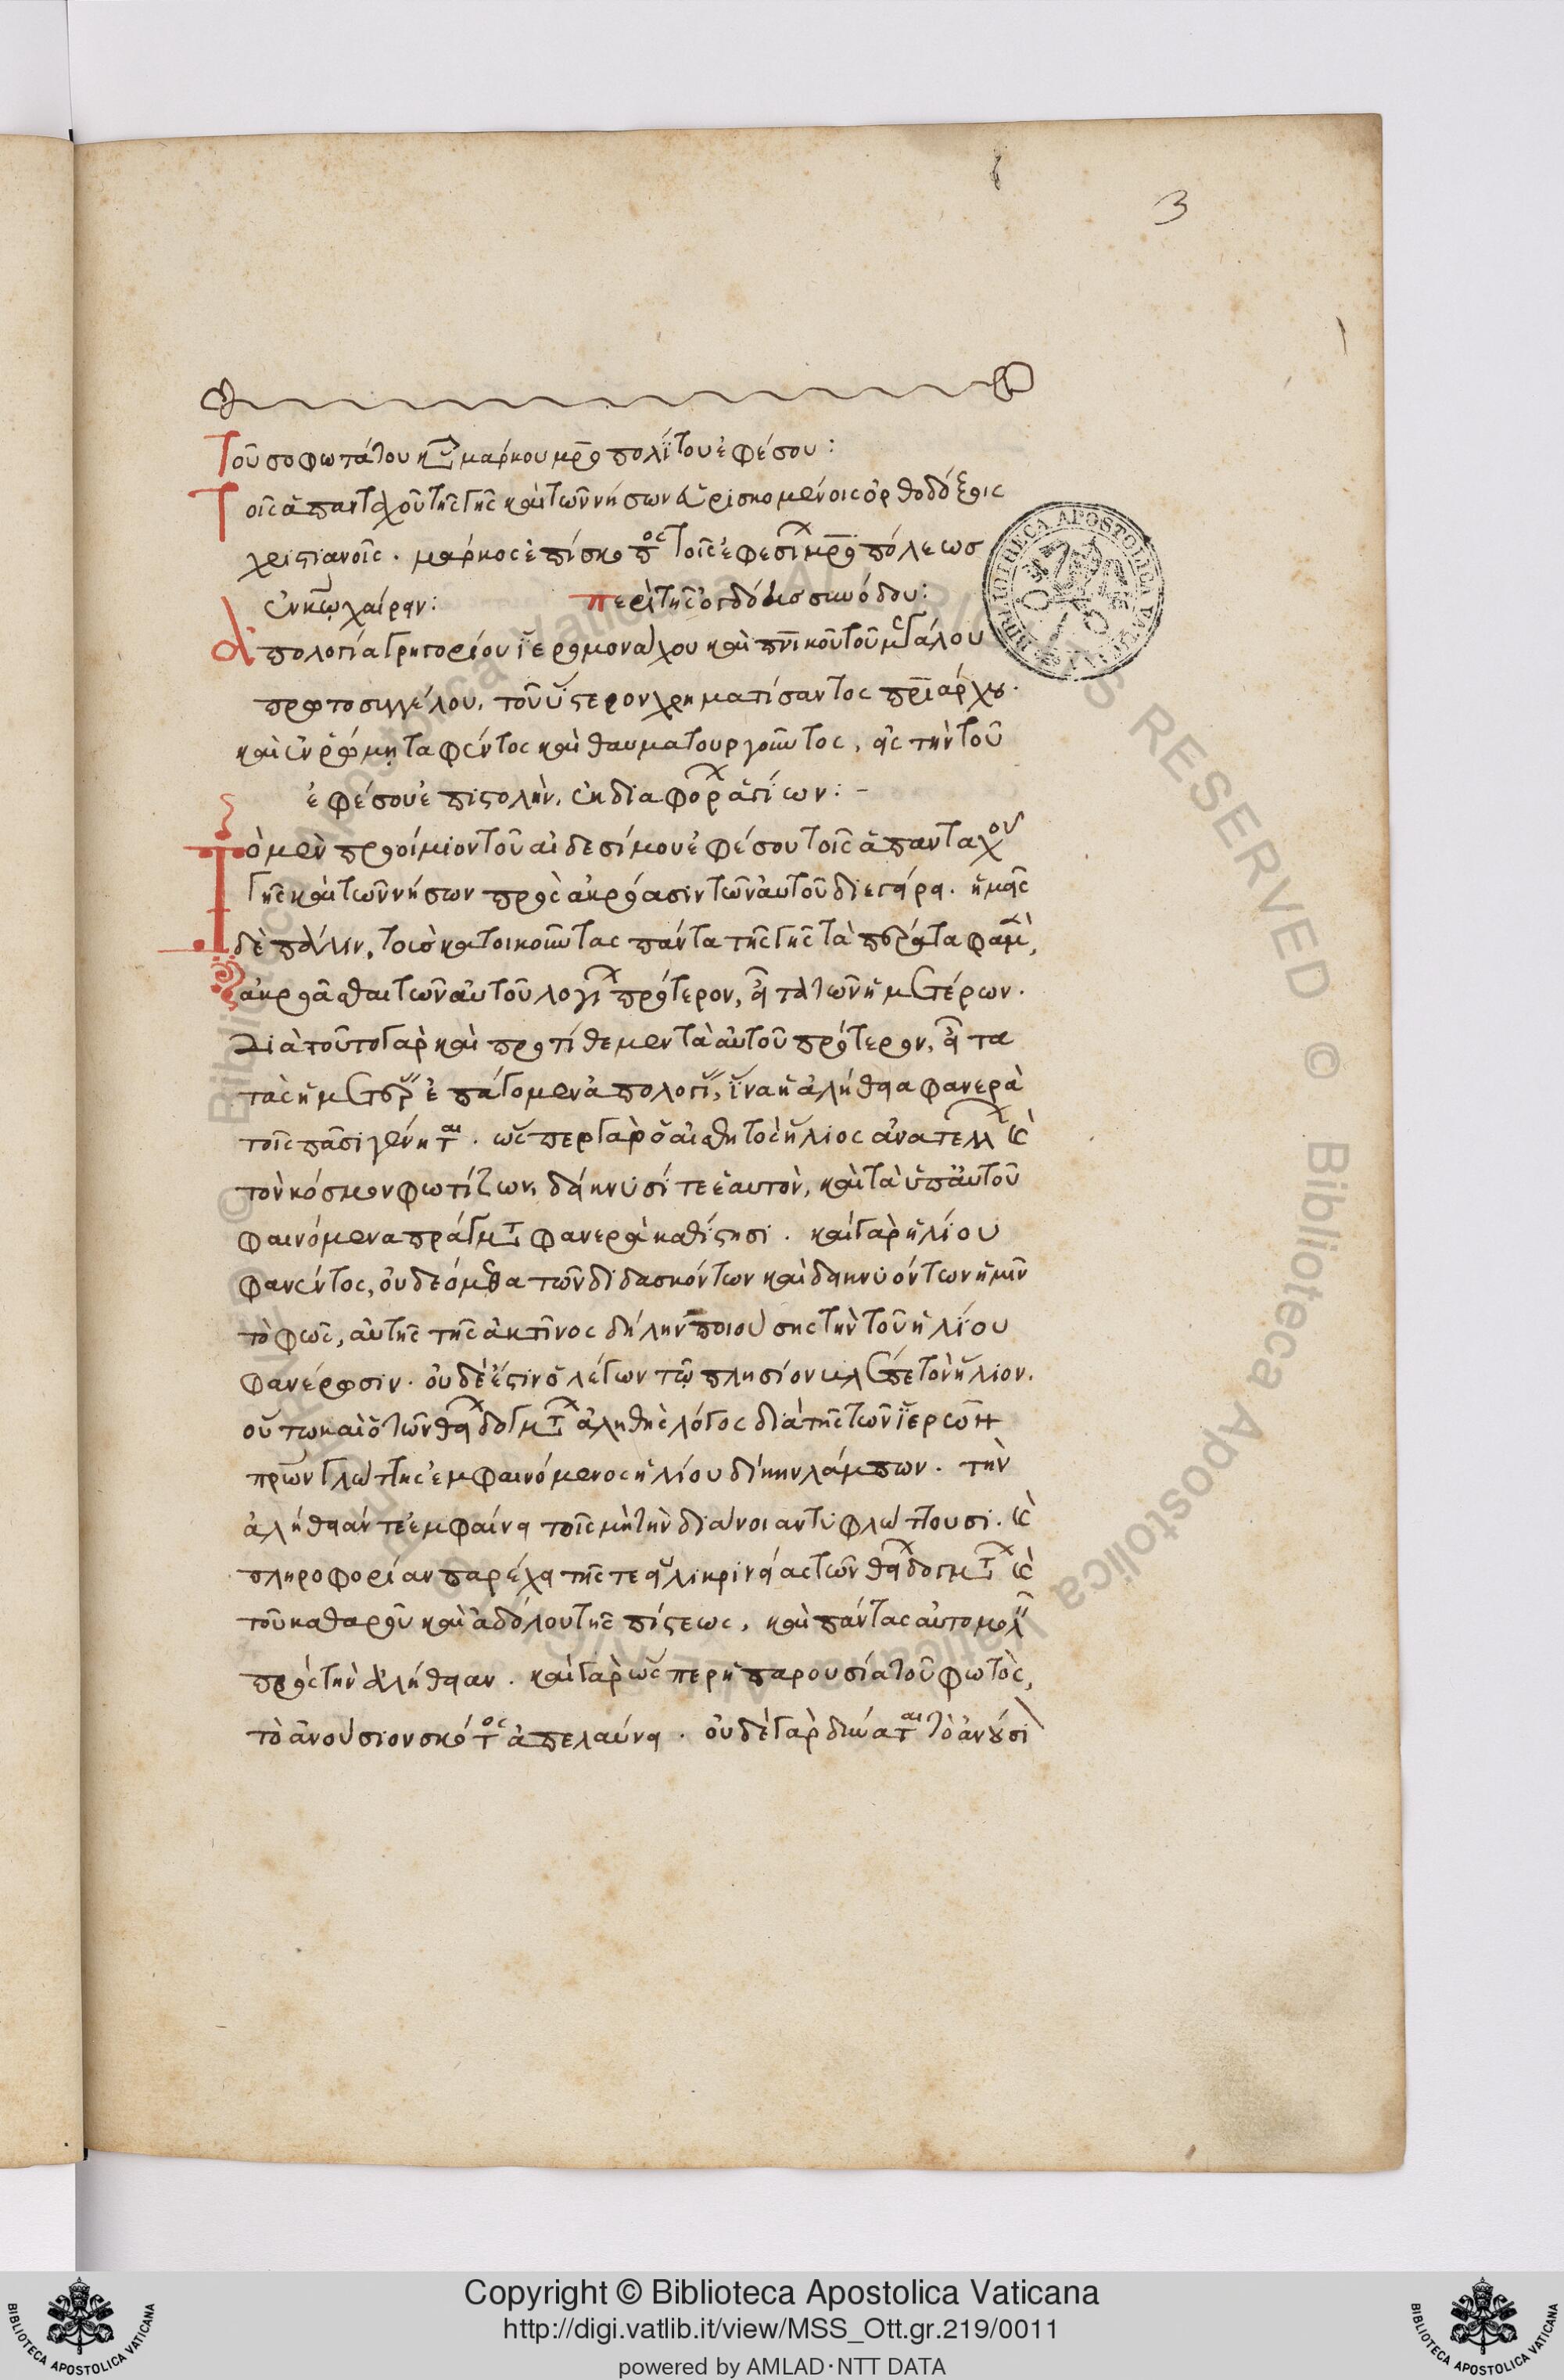 3
Τοῦ σοφωτάτου κυ μάρκου μρο πολίτου ἐφέσου:
Τοῖς ἁπανταχοῦ τῆς γῆς καὶ τῶν νήσων εὑρισκομένοις ὀρθοδόξοις
χριστιανοῖς. μάρκος ἐπίσκοπος τῆς ἐφεσίων μροπόλεως
ἐν κω χαίρειν: περὶ τῆς ὀγδόης συνόδου:
ἀπολογία γρηγορίου ἱερομονάχου καὶ πνικοῦ τοῦ μεγάλου
πρωτοσυγγέλου, τοῦ ὕστερον χρηματίσαντος πριάρχου.
καὶ ἐν ῥώμῃ ταφέντος καὶ θαυματουργοῦντος, εἰς τὴν τοῦ
ἐφέσου ἐπιστολὴν, ἐκ διαφόρων ἁγίων:-
Τὸ μὲν προοίμιον τοῦ αἰδεσίμου ἐφέσου τοῖς ἁπανταχοῦ
γῆς καὶ τῶν νήσων πρὸς ἀκρόασιν τῶν αὐτοῦ διεγείρει. ἡμᾶς
δὲ πάλιν, τοὺς κατοικοῦντας πάντα τῆς γῆς τὰ πέρατα φαμὲν,
ἀκροᾶσθαι τῶν αὐτοῦ λόγων πρότερον, εἶτα τῶν ἡμετέρων.
Διὰ τοῦτο γὰρ καὶ προτίθεμεν τὰ αὐτοῦ πρότερον, εἶτα
τὰς ἡμετέρας ἐπάγομεν ἀπολογίας, ἵνα ἡ ἀλήθεια φανερὰ
τοῖς πᾶσι γένηται. ὥσπερ γὰρ ὁ αἰσθητὸς ἥλιος ἀνατέλλων καὶ
τὸν κόσμον φωτίζων, δείκνυσί τε ἑαυτὸν, καὶ τὰ ὑπ' αὐτοῦ
φαινόμενα πράγματα φανερὰ καθίστησι. καὶ γὰρ ἡλίου
φανέντος, οὐ δεόμεθα τῶν διδασκόντων καὶ δεικνυόντων ἡμῖν
τὸ φῶς, αὐτῆς τῆς ἀκτῖνος δήλην ποιούσης τὴν τοῦ ἡλίου
φανέρωσιν. οὐδὲ ἔστιν ὁ λέγων τῷ πλησίον βλέπε τὸν ἥλιον.
οὕτω καὶ ὁ τῶν θείων δογμάτων ἀληθὴς λόγος διὰ τῆς τῶν ἱερῶν
πρων γλώττης ἐμφαινόμενος ἡλίου δίκην λάμπων. τὴν
ἀλήθειάν τε ἐμφαίνει τοῖς μὴ τὴν διάνοιαν τυφλώττουσι. καὶ
πληροφορίαν παρέχει τῆς τε εἰλικρινείας τῶν θείων δογμάτων καὶ
τοῦ καθαροῦ καὶ ἀδόλου τῆς πίστεως, καὶ πάντας αὐτομολεῖν
πρὸς τὴν ἀλήθειαν. καὶ γὰρ ὥσπερ ἡ παρουσία τοῦ φωτὸς,
τὸ ἀνούσιον σκότος ἀπελαύνει. οὐδὲ γὰρ δύναται τὸ ἀνούσι
BIBLIOTHECA APOSTOLICA VATICANA
Copyright © Biblioteca Apostolica Vaticana
http://digi.vatlib.it/view/MSS_Ott.gr.219/0011
powered by AMLAD·NTT DATA